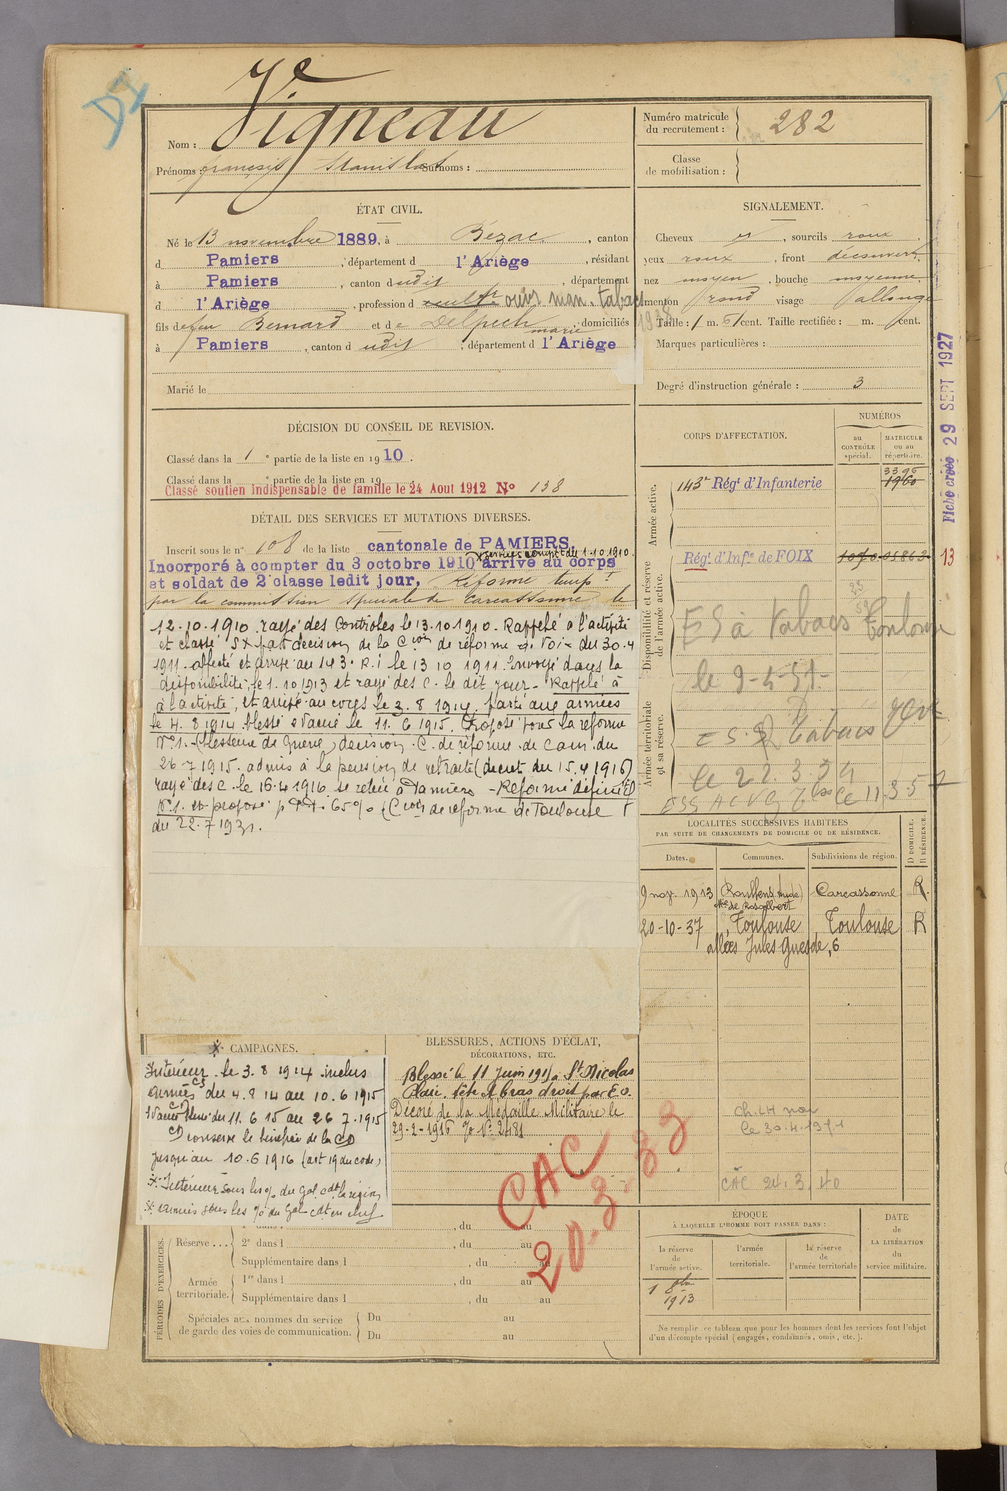 Vigneau
Nom :
Prénoms : françois Stanislas Surnoms :
Numéro matricule
du recrutement : 282
Classe
de mobilisation :
ÉTAT CIVIL.
Né le 13 novembre 1889, à Bézac, canton
d Pamiers, département d l'Ariège, résidant
à Pamiers, canton dudit, département
d l'Ariège, profession d cultr ouvr man. tabacs
fils de feu Bernard et de Delpech marie, domiciliés
à Pamiers, canton dudit, département d l'Ariège
Marié le
SIGNALEMENT.
Cheveux, sourcils roux
yeux roux, front découvert,
nez moyen, bouche moyenne
menton rond visage allongé
Taille : 1 m. 61 cent. Taille rectifiée : m. cent.
Marques particulières :
Degré d'instruction générale : 3
Fiche créée 29 SEPT 1927
DÉCISION DU CONSEIL DE REVISION.
Classé dans la 1e partie de la liste en 1910.
Classé dans la e partie de la liste en 19
Classé soutien indispensable de famille le 24 Aout 1912 No 138
DÉTAIL DES SERVICES ET MUTATIONS DIVERSES.
Inscrit sous le n° 108 de la liste cantonale de PAMIERS.
services compt du 1.10.1910.
Incorporé à compter du 3 octobre 1910 arrivé au corps
et soldat de 2e classe ledit jour, Réformé tempt
par la commission spéciale de Carcassonne le
12.10.1910. rayé des Contrôles le 13.10.1910. Rappelé à l'activité
et classé SX par décision de la Con de réforme de Foix du 30.4
1911. affecté et arrivé au 143e R.I le 13 10 1911. Envoyé dans la
disponibilité le 1.10.1913 et rayé des C. le dit jour - Rappelé à
à l'activité, et arrivé au corps le 3.8 1914. parti aux armées
le 4.8 1914 blessé évacué le 11.6 1915. Proposé pour la réforme
N°1. (blessure de guerre) décision C. de réforme de Caen du
26-7 1915. admis à la pension de retraite (décret du 15.4 1916)
rayé des C. le 16-4 1916 se retire à Pamiers - Réformé définitif
N°1. et proposé p PP. 65% (Con de réforme de Toulouse
du 22.7 1931.
CORPS D'AFFECTATION.
NUMÉROS
au
CONTRÔLE
spécial.
MATRICULE
ou au
répertoire.
Armée active.
143e Régt d'Infanterie
3396
1960
Disponibilité et réserve
de l'armée active.
Régt d'Infie de FOIX
1070 05863
13
ES à Tabacs Toulouse
le 9-5-31-
Armée territoriale
et sa réserve.
ES Tabacs
le 22.3.34
LOCALITÉS SUCCESSIVES HABITÉES
PAR SUITE DE CHANGEMENTS DE DOMICILE OU DE RÉSIDENCE.
Dates.
Communes.
Subdivisions de région.
D DOMICILE.
R RÉSIDENCE.
9 nov. 1913 Roullens Aude Carcassonne R.
20-10-37 Toulouse Toulouse R
allées Jules Guesde, 6
Ch. LH
le 30.4.1931
CAC 24.3.40
CAMPAGNES.
Intérieur le 3.8 1914 inclus
armées du 4.8 14 au 10.6 1915
Évacué blessé du 11.6 15 au 26 7.1915
conserve le bénéfice de la CD
jusqu'au 10.6 1916 (art 19 du code)
Intérieur sous les o/. du Gal cdt la région
armées sous les o/. du Gal cdt en chef
BLESSURES, ACTIONS D'ÉCLAT,
DÉCORATIONS, ETC.
Blessé le 11 Juin 1915 à St Nicolas
Plaie tête et bras droit par E.O.
Décoré de la Médaille Militaire le
29-2-1916
CAC
20.3.33
PÉRIODES D'EXERCICES.
Réserve . . .
, du au
2e dans l , du au
Supplémentaire dans l , du au
Armée
territoriale.
1re dans l , du au
Supplémentaire dans l , du au
Spéciales aux hommes du service
de garde des voies de communication.
Du au
Du au
ÉPOQUE
À LAQUELLE L'HOMME DOIT PASSER DANS :
la réserve
de
l'armée active.
l'armée
territoriale.
la réserve
de
l'armée territoriale
DATE
de
LA LIBÉRATION
du
service militaire.
1 8bre
1913
Ne remplir ce tableau que pour les hommes dont les services font l'objet
d'un décompte spécial (engagés, condamnés, omis, etc.).